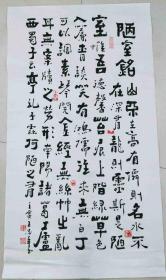 陋室銘 山不在高有僊則名水不
在深有龍則靈斯是陋
室惟吾德馨苔痕上階綠草色
入簾青談笑有鴻儒往來無白丁
可以調素琴閱金經無絲竹之亂
耳無案牘之勞形南陽諸葛廬
西蜀子云亭孔子云何陋之有